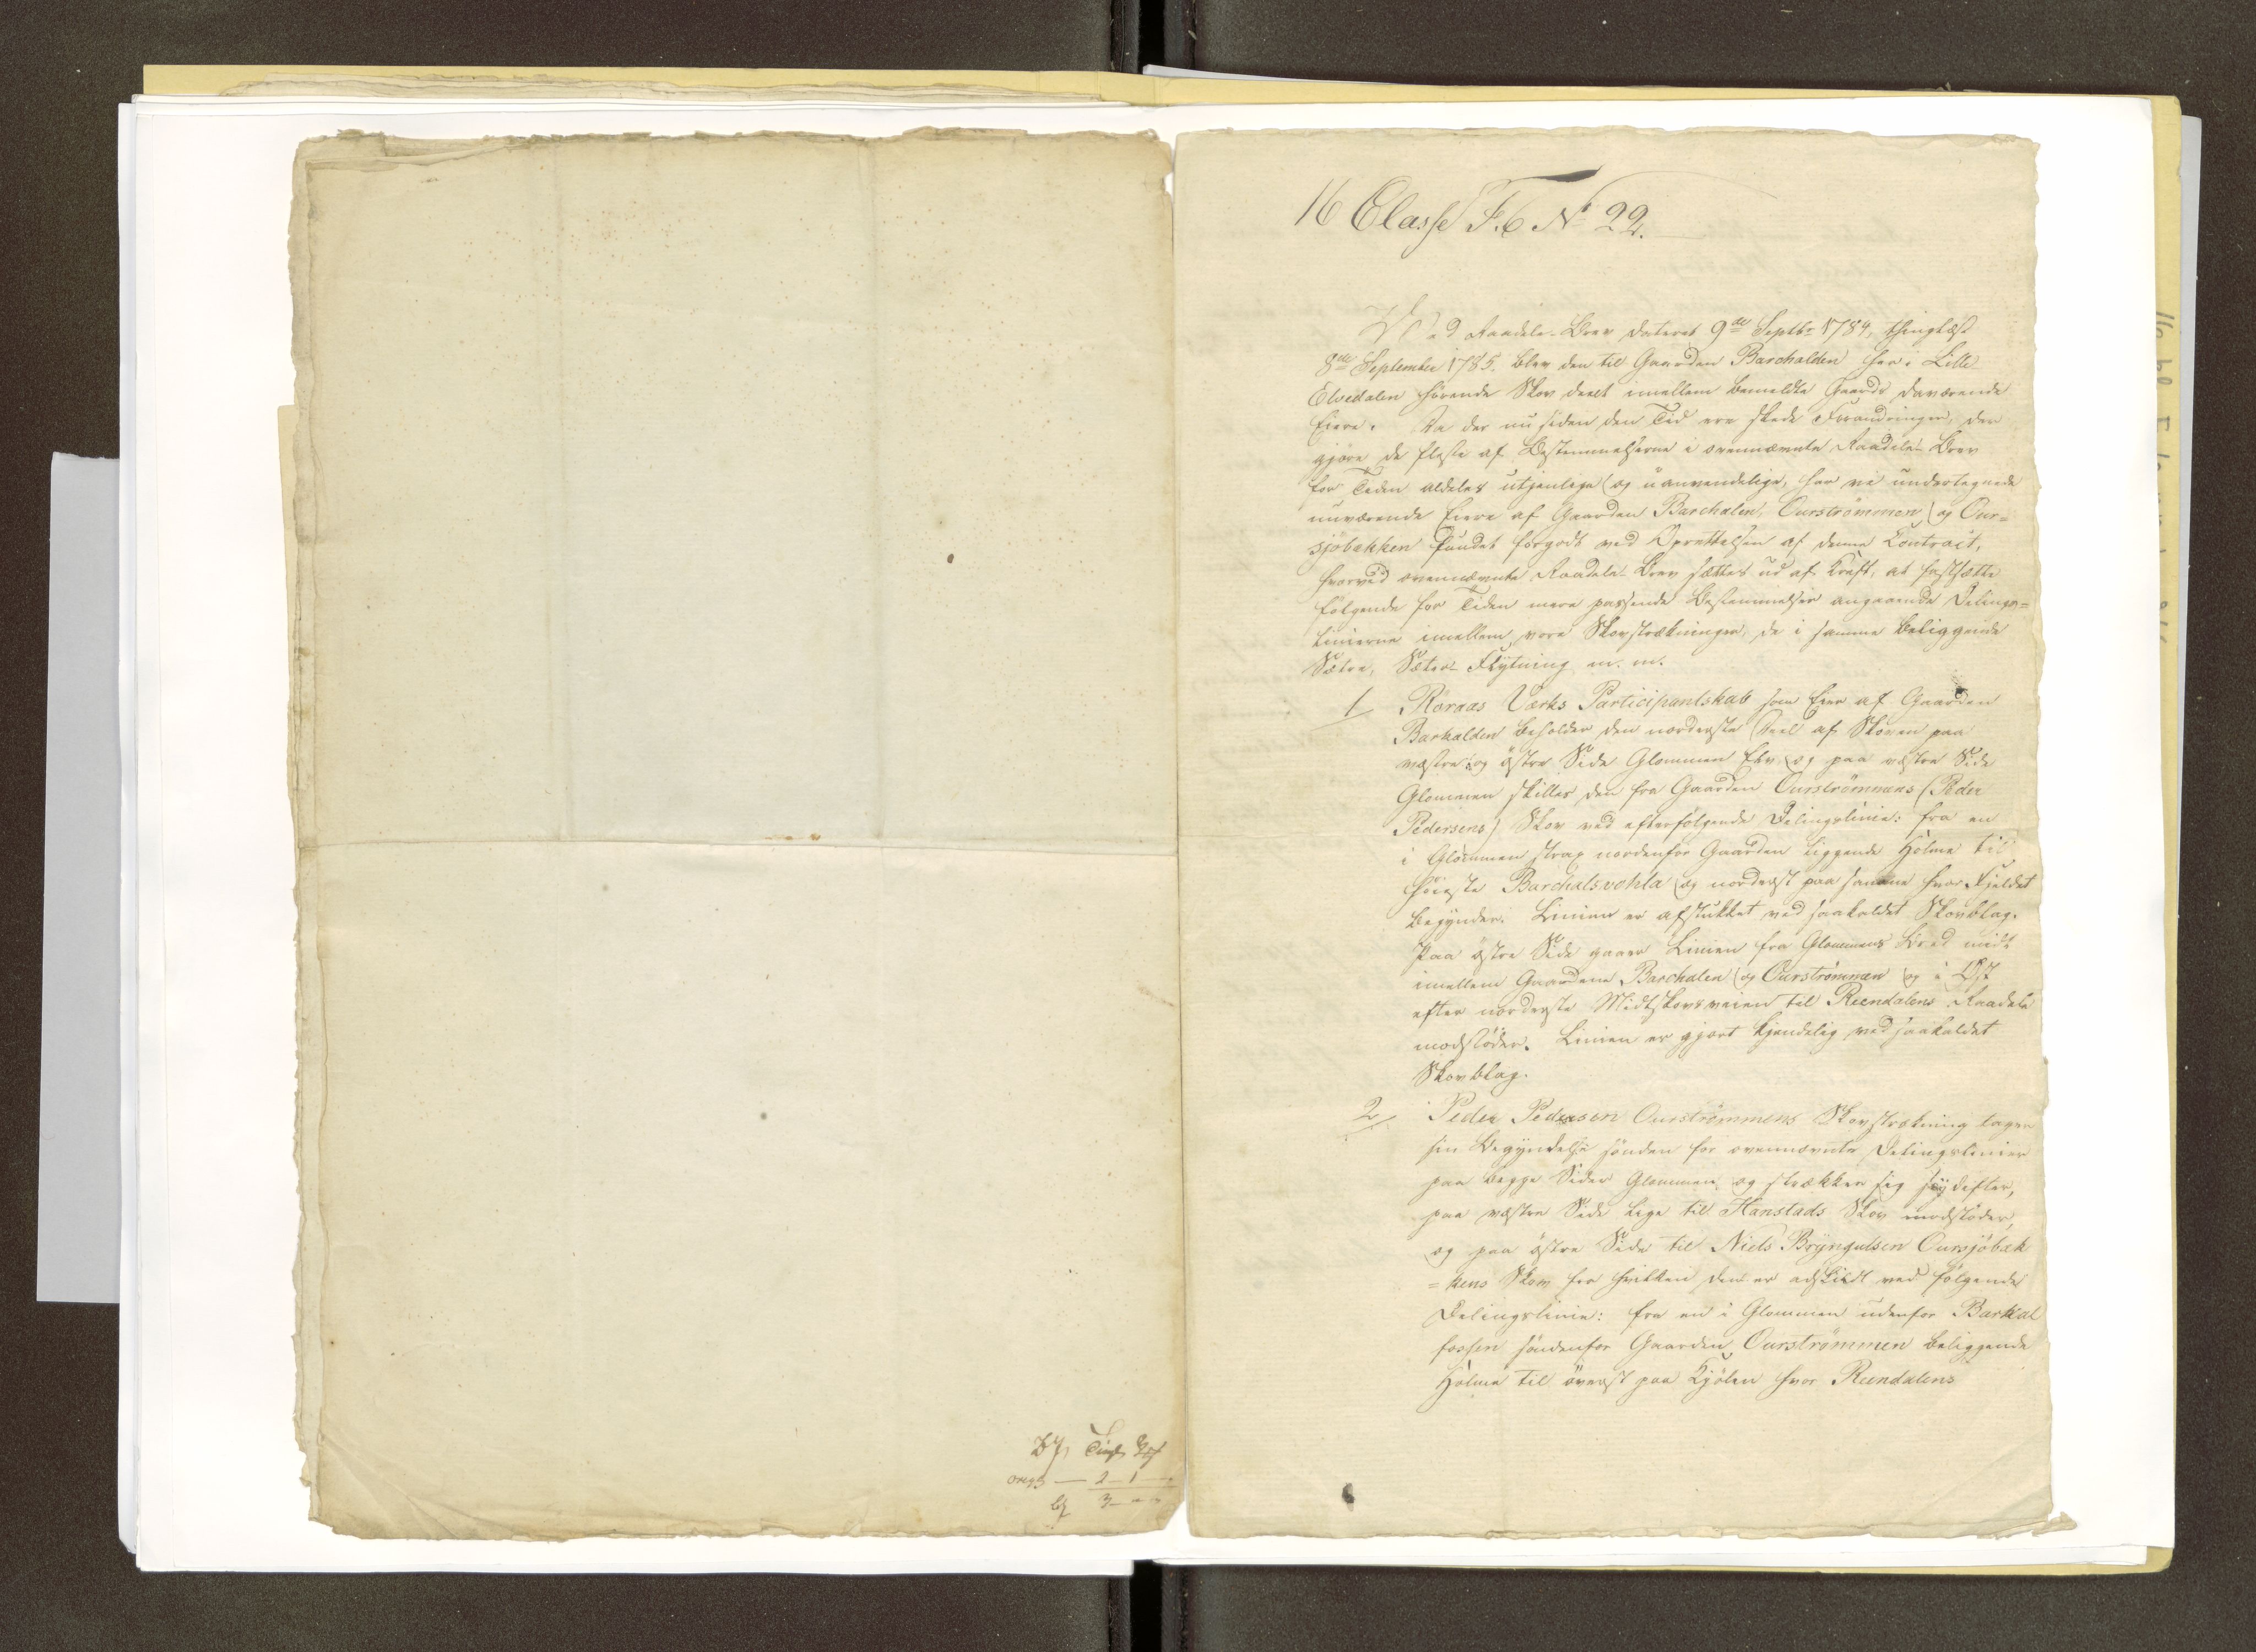 16 Classe F. 6 No 22.
Ved Raadele-Brev dateret 9de Septbr 1784, thinglæst
8de September 1785. blev den til Gaarden Barchalden her i Lille
Elvedalen hørende Skov deelt imellem bemeldte Gaards daværende
Eiere. Da der nu siden den Tid ere skede Forandringer, der
gjøre de fleste af Bestemmelserne i ovennævnte Raadele-Brev
for Tiden aldeles utjenlige og uanvendelige, har vi undertegnede
nuværende Eiere af Gaarden Barchalen, Ourstrømmen og Our=
sjøbækken fundet forgodt ved Oprettelsen af denne Contract,
hvorved ovennævnte Raadele-Brev sættes ud af Kraft, at fastsætte
følgende for Tiden mere passende Bestemmelser angaaende Delings=
linierne imellem vore Skovstrækninger, de i samme beliggende
Sætre, Sæter-Flytning m. m.
1 Røraas Værks Participantskab som Eier af Gaarden
Barkalden beholder den nordreste Deel af Skoven paa
vestre og østre Side Glommen Elv, og paa vestre Side
Glommen skilles den fra Gaarden Ourstrømmens (Peder
Pedersens) Skov ved efterfølgende Delingslinie: fra en
i Glommen strax nordenfor Gaarden liggende Holme til
høieste Barchalsvohla og nordest paa samme hvor Fjeldet
begynder. Linien er afstukket ved saakaldet Skovblag.
Paa østre Side gaaer Linien fra Glommens Bred midt
imellem Gaardene Barchalen og Ourstrømmen og i Øst
efter nordreste Midtskovsveien til Reendalens Raadele
modstøder. Linien er gjort kjendelig ved saakaldet
Skovblag.
2 Peder Pedersen Ourstrømmens Skovstrækning tager
sin Begyndelse sønden for ovennævnte Delingslinier
paa begge Sider Glommen, og strækker sig sydefter,
paa vestre Side lige til Hanstads Skov modstøder,
og paa østre Side til Niels Bryngulsen Oursjøbæk
=kens Skov fra hvilken den er adskildt ved følgende
Delingslinie: fra en i Glommen udenfor Barkal
fossen søndenfor Gaarden Ourstrømmen beliggende
Holme til øverst paa Kjølen hvor Reendalens
2 - 1
3 - -